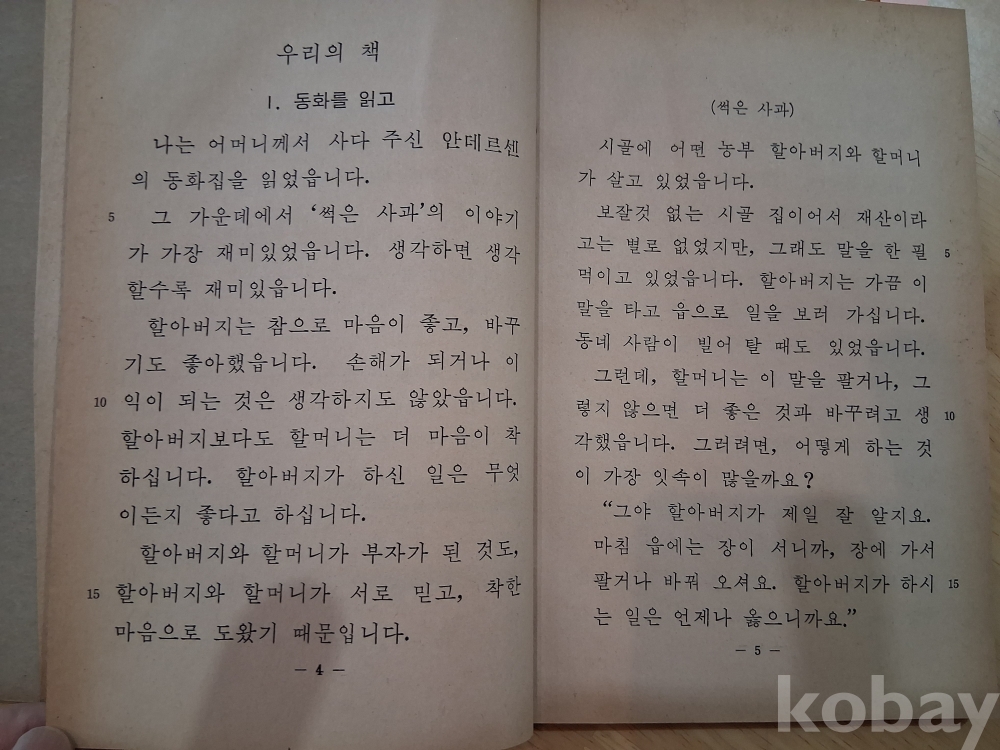 우리의 책
1. 동화를 읽고
나는 어머니께서 사다 주신 안데르센
의 동화집을 읽었읍니다.
5 그 가운데에서 ‘썩은 사과’의 이야기
가 가장 재미있었읍니다. 생각하면 생각
할수록 재미있읍니다.
할아버지는 참으로 마음이 좋고, 바꾸
기도 좋아했읍니다. 손해가 되거나 이
10 익이 되는 것은 생각하지도 않았읍니다.
할아버지보다도 할머니는 더 마음이 착
하십니다. 할아버지가 하신 일은 무엇
이든지 좋다고 하십니다.
할아버지와 할머니가 부자가 된 것도,
15 할아버지와 할머니가 서로 믿고, 착한
마음으로 도왔기 때문입니다.
— 4 —
(썩은 사과)
시골에 어떤 농부 할아버지와 할머니
가 살고 있었읍니다.
보잘것 없는 시골 집이어서 재산이라
고는 별로 없었지만, 그래도 말을 한 필 5
먹이고 있었읍니다. 할아버지는 가끔 이
말을 타고 읍으로 일을 보러 가십니다.
동네 사람이 빌어 탈 때도 있었읍니다.
그런데, 할머니는 이 말을 팔거나, 그
렇지 않으면 더 좋은 것과 바꾸려고 생 10
각했읍니다. 그러려면, 어떻게 하는 것
이 가장 잇속이 많을까요?
“그야 할아버지가 제일 잘 알지요.
마침 읍에는 장이 서니까, 장에 가서
팔거나 바꿔 오셔요. 할아버지가 하시 15
는 일은 언제나 옳으니까요.”
— 5 —
kobay